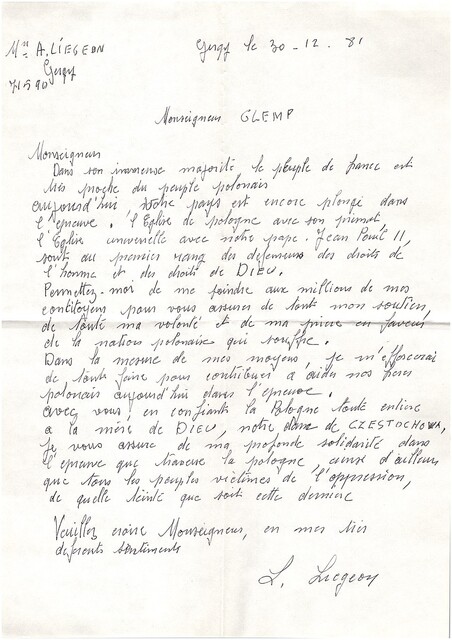 Mme A. LIEGEON
Gergy le 30-12.81
Gergy
71590
Monseigneur GLEMP
Monseigneur
Dans son immense majorité le peuple de france est
très proche du peuple polonais
aujourd'hui votre pays est encore plongé dans
l'épreuve. l'Eglise de pologne avec son primat,
l'Eglise universelle avec notre pape. Jean Paul II,
sont au premier rang des defenseurs des droits de
l'homme et des droits de DIEU.
Permettez-moi de me joindre aux millions de mes
concitoyens pour vous assurer de tout mon soutien
de toute ma volonté et de ma prière en faveur
de la nation polonaise qui souffre.
Dans la mesure de mes moyens, je m'efforcerai
de tout faire pour contribuer a aider nos frères
polonais aujourd'hui dans l'épreuve.
avec vous, en confiant la Pologne toute entière
a la mère de DIEU, notre dame de CZESTOCHOWA,
je vous assure de ma profonde solidarité dans
l'épreuve que traverse la pologne, ainsi d'ailleurs
que tous les peuples victimes de l'oppression,
de quelle teinté que soit cette dernière
Veuillez croire Monseigneur, en mes très
deferents sentiments
L. Liegeon